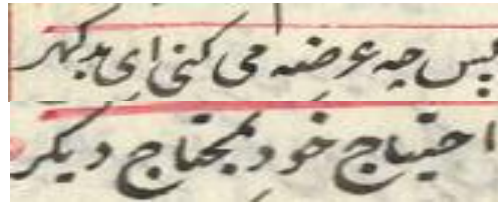 پس چه عرضه می کنی ای بد گهر
احتیاج خود بمحتاج دیگر